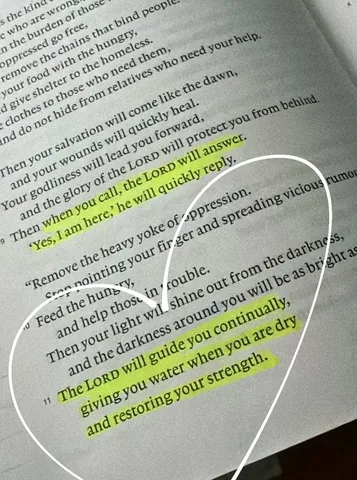 s the kind
who are wrong
the burden of those
oppressed go free,
remove the chains that bind people.
your food with the hungry,
d give shelter to the homeless.
clothes to those who need them,
nd do not hide from relatives who need your help.
Then your salvation will come like the dawn,
and your wounds will quickly heal.
Your godliness will lead you forward,
and the glory of the LORD will protect you from behind.
9 Then when you call, the LORD will answer.
‘Yes, I am here,’ he will quickly reply.
“Remove the heavy yoke of oppression.
Stop pointing your finger and spreading vicious rumor
Feed the hungry,
and help those in trouble.
Then your light will shine out from the darkness,
and the darkness around you will be as bright as
11 The LORD will guide you continually,
giving you water when you are dry
and restoring your strength.